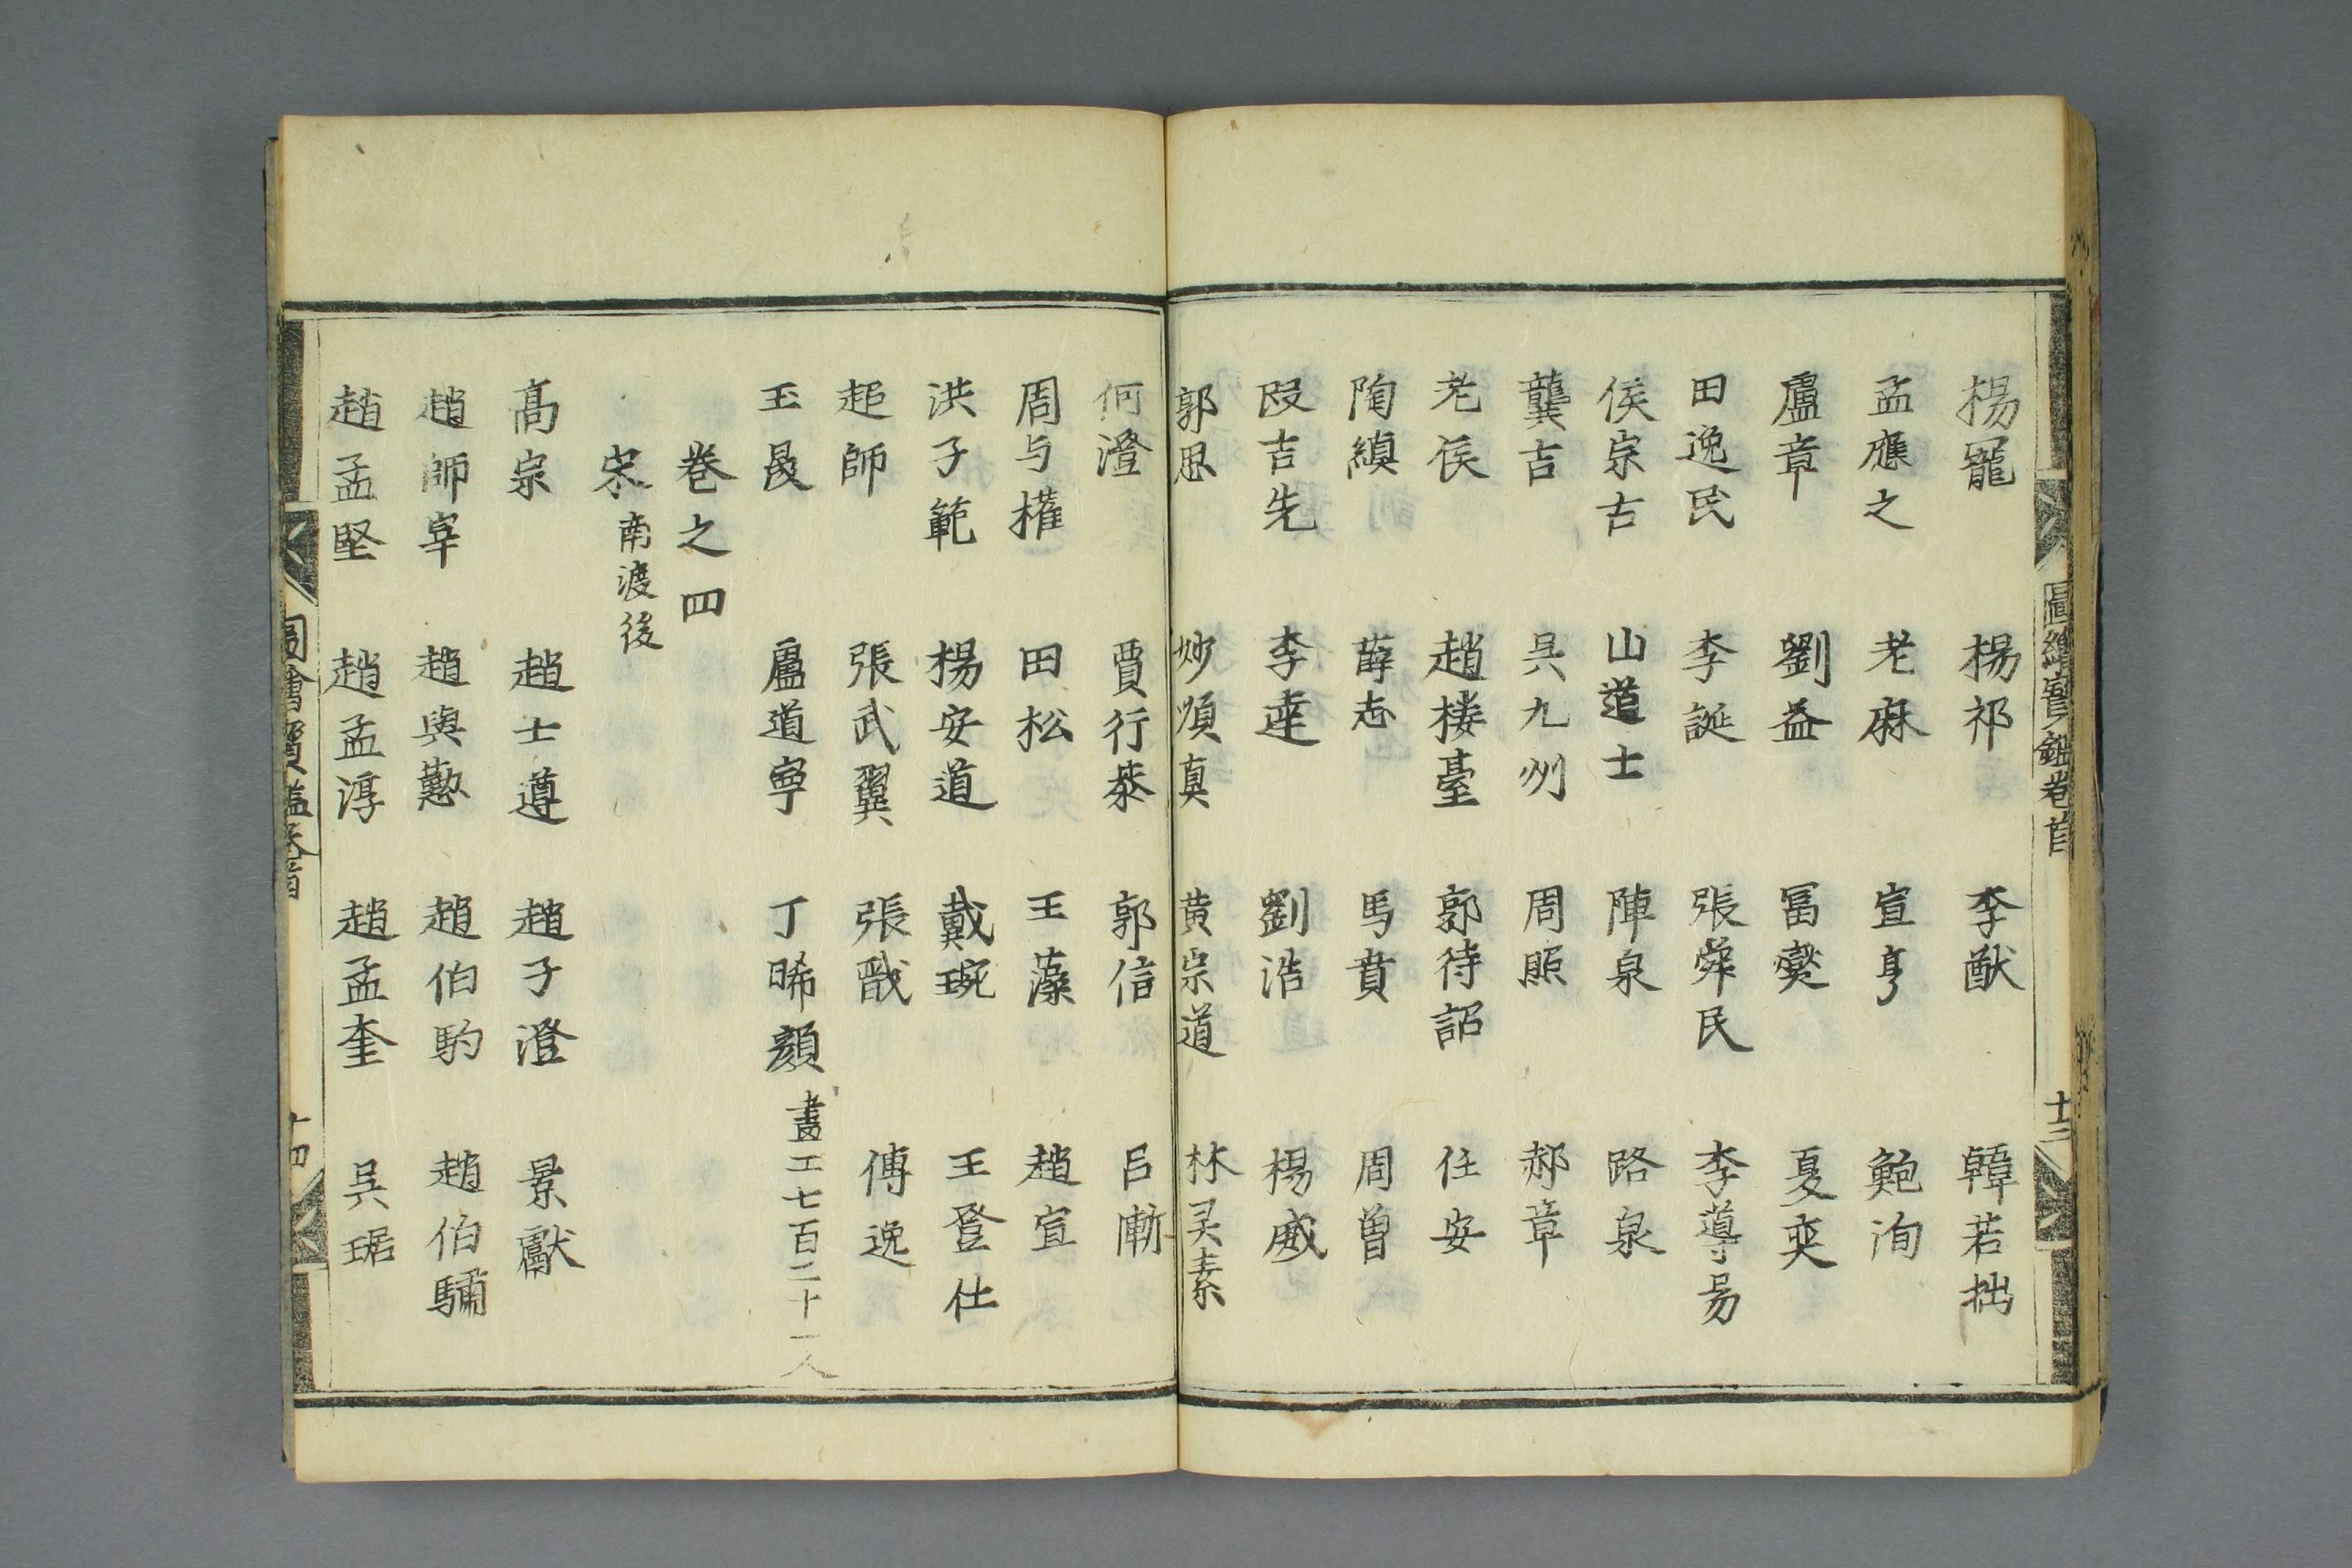 圖繪寶鑑卷首
十三
楊寵 楊祁 李猷 韓若拙
孟應之 老麻 宣亨 鮑洵
盧章 劉益 冨燮 夏奕
田逸民 李誕 張舜民 李導易
侯宗古 山道士 陣泉 路泉
龔吉 吳九州 周照 郝章
老侯 趙樓臺 郭待詔 任安
陶縝 薛志 馬賁 周曽
段吉先 李達 劉浩 楊威
郭思 妙順真 黄宗道 林灵素
何澄 賈行恭 郭信 吕漸
周与權 田松 王藻 趙宣
洪子範 楊安道 戴琬 王登仕
趙師 張武翼 張戬 傅逸
王晸 盧道寧 丁晞顔 畫工七百二十一人
卷之四
宋南渡後
髙宗 趙士遵 趙子澄 景獻
趙師宰 趙與懃 趙伯駒 趙伯驌
趙孟堅 趙孟淳 趙孟奎 吳琚
圖繪寶鑑卷首
十四